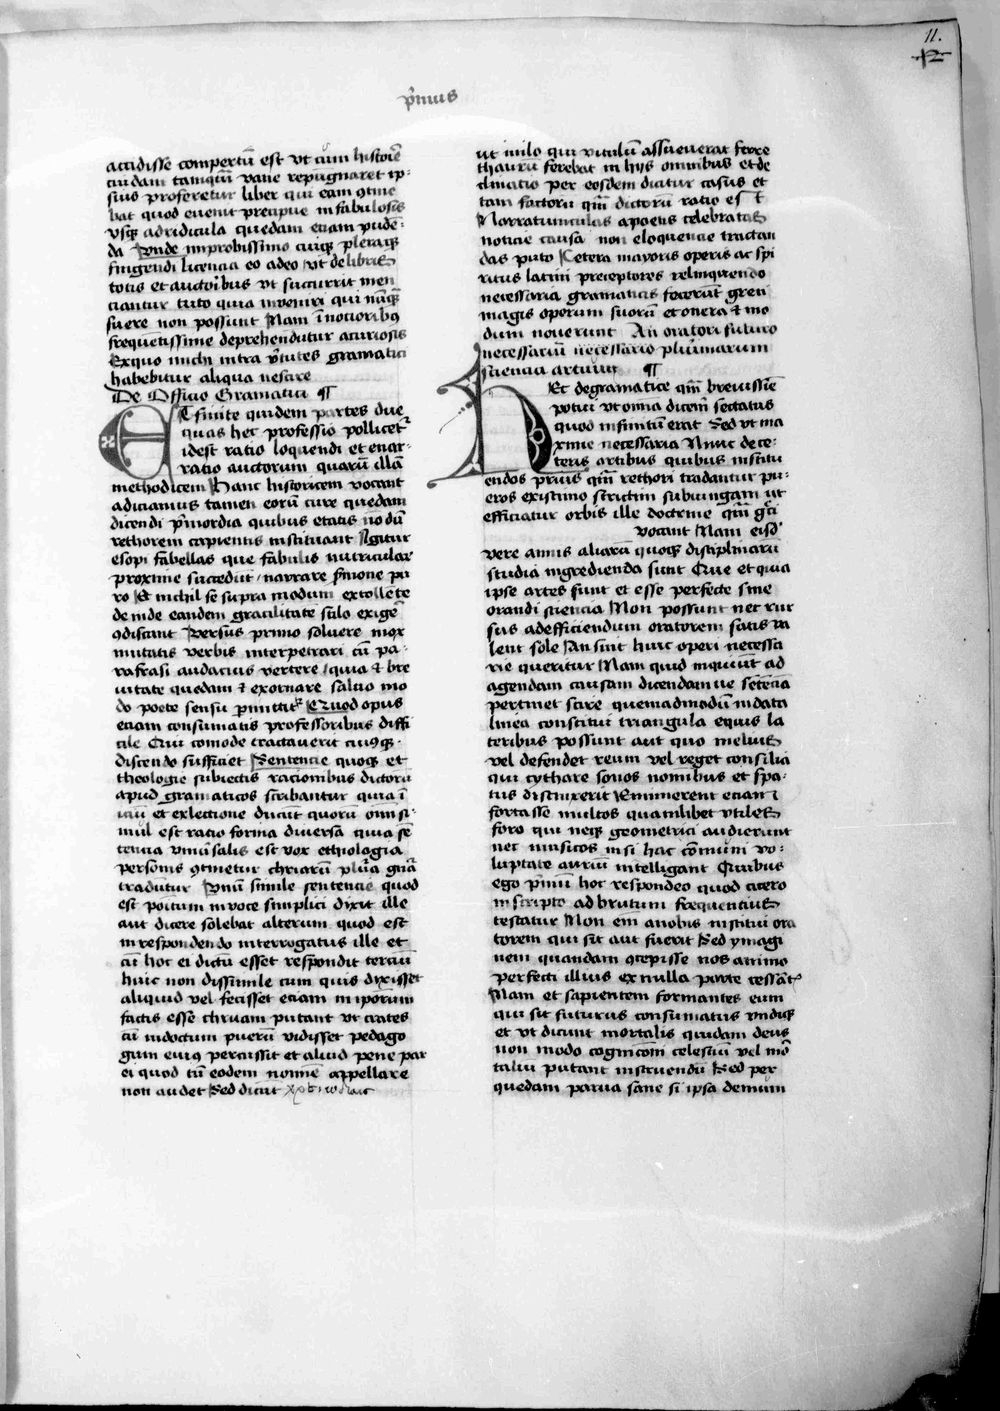 11.
p̄mus
accidisse compertū est vt cum historie
cuidam tamquā vane repugnaret ip-
sius proferetur liber qui eam ꝯtine
bat quod euenit precipue in fabulosis
vsqȝ ad ridicula quedam etiam puden-
da Unde improbissimo cuiqȝ pleraqȝ
fingendi licencia eo adeo vt de libris
totis et auctoribus vt succurrit men
ciantur tuto quia inveniri qui nūqȝ
fuere non possunt Nam ī notioribꝰ
frequētissime deprehenduntur a curiosis
Ex quo michi intra v̄tutes gramatici
habebitur aliqua nescire
De Officio Gramatici ¶
ET finite quidem partes due
quas hec professio pollicetᷣ
idest ratio loquendi et enar-
ratio auctorum quarū illā
methodicem Hanc historicem vocant
adiciamus tamen eorū cure quedam
dicendi p̄mordia quibus etatis nō dū
rethorem capientis instituant Igitur
esopi fabellas que fabulis nutricular
proxime succedūt narrare s̄mone pu
ro Et nichil se supra modum extollēte
deinde eandem gracilitatē stilo exigē
ꝯdiscant Versus primo soluere mox
mutatis verbis interpetrari tū pa-
rafrasi audacius vertere qua ⁊ bre
uitate quedam ⁊ exornare saluo mo
do poete sensu p̱mittitᷣ Quod opus
etiam consumatis professoribus diffi
cile Qui comode tractauerit cuiꝯqȝ
discendo sufficiet Sentencie quoqȝ et
theologie subiectis racionibus dictorū
apud gramaticos scribantur quia ī
iciū et ex lectione ducūt quorū omniū si-
mul est ratio forma diuersa quia sē
tencia vniūsalis est vox ethologia
personis ꝯtinetur chriarū plūa gnā
tradūtur Unū simile sentencie quod
est positum in voce simplici dixit ille
aut dicere solebat alterum quod est
in respondendo interrogatus ille et
cū hoc ei dictū esset respondit terciū
huic non dissimile cum quis dixisset
aliquid vel fecisset etiam in ip̄orum
factis esse chriam putant vt crates
cū indoctum puerū vidisset pedago
gum eiuꝯ percussit et aliud pene par
ei quod tū eodem nomīe appellare
non audet Sed dicūt
ut milo qui vitulū assueuerat ferre
thaurū ferebat in hijs omnibus et de
clinatio per eosdem dicitur casus et
tam factorū qm̄ dictorū ratio est
Narratiunculas a poetis celebratas
noticie causa non eloquencie tractan
das puto Cetera maioris operis ac spi
ritus latini preceptores relinquendo
necessaria gramaticis fecerūt greti
magis operum suorū et onera ⁊ mo
dum nouerunt An oratori futuro
necessariū necessario plurimarum
sciencia artium ¶
ET de gramatice qm̄ breuissie
potui vt omnia dicem̄ sectatus
quod infinitū erat Sed vt ma
xime necessaria Nunc de ce-
teris artibus quibus institu
endos prius qm̄ rethori tradantur pu-
eros existimo strictim subiungam ut
efficiatur orbis ille doctrine qm̄ gc̄i
vocant Nam eisdꝰ
vere annis aliarū quoqȝ disciplinarū
studia ingredienda sunt Que et quia
ipse artes sunt et esse perfecte sine
orandi sciencia Non possunt nec rur
sus ad efficiendum oratorem satis va
lent sole An sint huic operi necessa
rie queritur Nam quid inquiūt ad
agendam causam dicendamue sētēciā
pertinet scire quemadmodū in data
linea constitui triangula equis la
teribus possunt aut quo melius
vel defendet reum vel reget consilia
qui cythare sonos nominibus et spa-
tiis distinxerit Enumerent etiam ī
fortasse multos quamlibet vtiles
foro qui neqȝ geometrici audierunt
nec musicos nisi hac cōmuni vo-
luptate auriū intelligant Quibus
ego p̄mū hoc respondeo quod cicero
in scripto ad brutum frequentius
testatur Non em̄ a nobis institui ora
torem qui sit aut fuerit Sed ymagi
nem quandam ꝯcepisse nos animo
perfecti illius ex nulla parte cessāt᷒
Nam et sapientem formantes eum
qui sit futurus consumatus vndiqȝ
et vt dicunt mortalis quidam deus
non modo cognicōem celestiū vel mō
taliū putant instruendū Sed per
quedam parua sane si ipsa demum